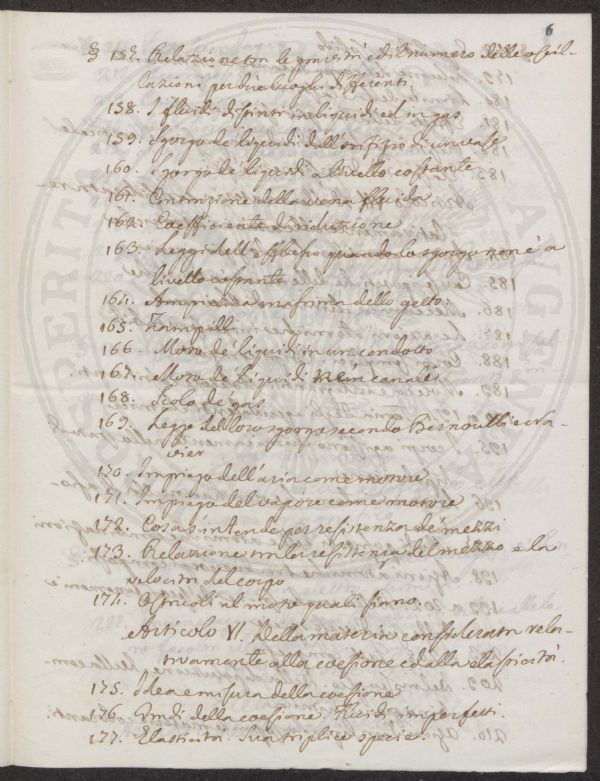 6
§ 157. Relazione tra le gravità ed il numero delle oscil-
lazioni per due luoghi differenti.
158. I fluidi distinti in liquidi ed in gas
159. Sgorgo de' liquidi dall'orifizio di un vase
160. Sgorgo de' liquidi a livello costante
161. Contrazione della vena fluida
162. Coefficiente di riduzione
163. Leggi dell'efflusso quando lo sgorgo non è a
livello costante
164. Ampiezza massima dello getto.
165. Zampilli
166. Moto de' liquidi in un condotto
167. Moto de' liquidi ne' canali
168. Scolo de' gas
169. Legge dello sgorgo secondo Bernoulli e Na-
vier
170. Impiego dell'aria come motore
171. Impiego del vapore come motore
172. Cosa s'intende per resistenza de' mezzi
173. Relazione tra la resistenza del mezzo e la
velocità del corpo
174. Ostacoli al moto quali siano.
Articolo VI. Della materia considerata rela-
tivamente alla coesione ed alla elasticità.
175. Idea e misura della coesione
176. Gradi della coesione. Fluidi imperfetti.
177. Elasticità. Sua triplice specie.